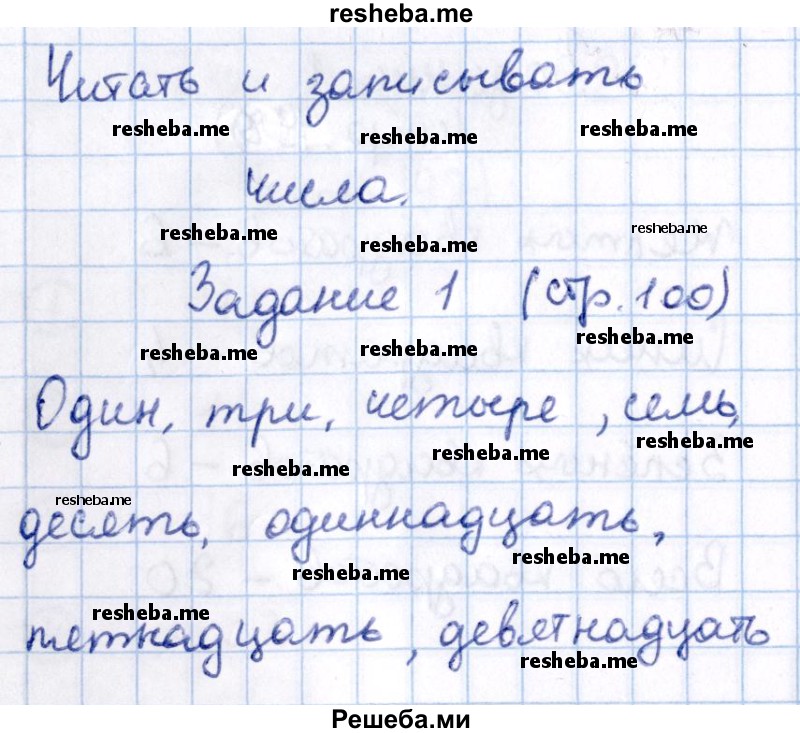 resheba.me
Читать и записывать
resheba.me resheba.me resheba.me
числа.
resheba.me resheba.me resheba.me
Задание 1 (стр.100)
resheba.me resheba.me resheba.me
Один, три, четыре, семь,
resheba.me resheba.me resheba.me
resheba.me
десять, одиннадцать,
resheba.me resheba.me
resheba.me
пятнадцать, девятнадцать
resheba.me
Решеба.ми